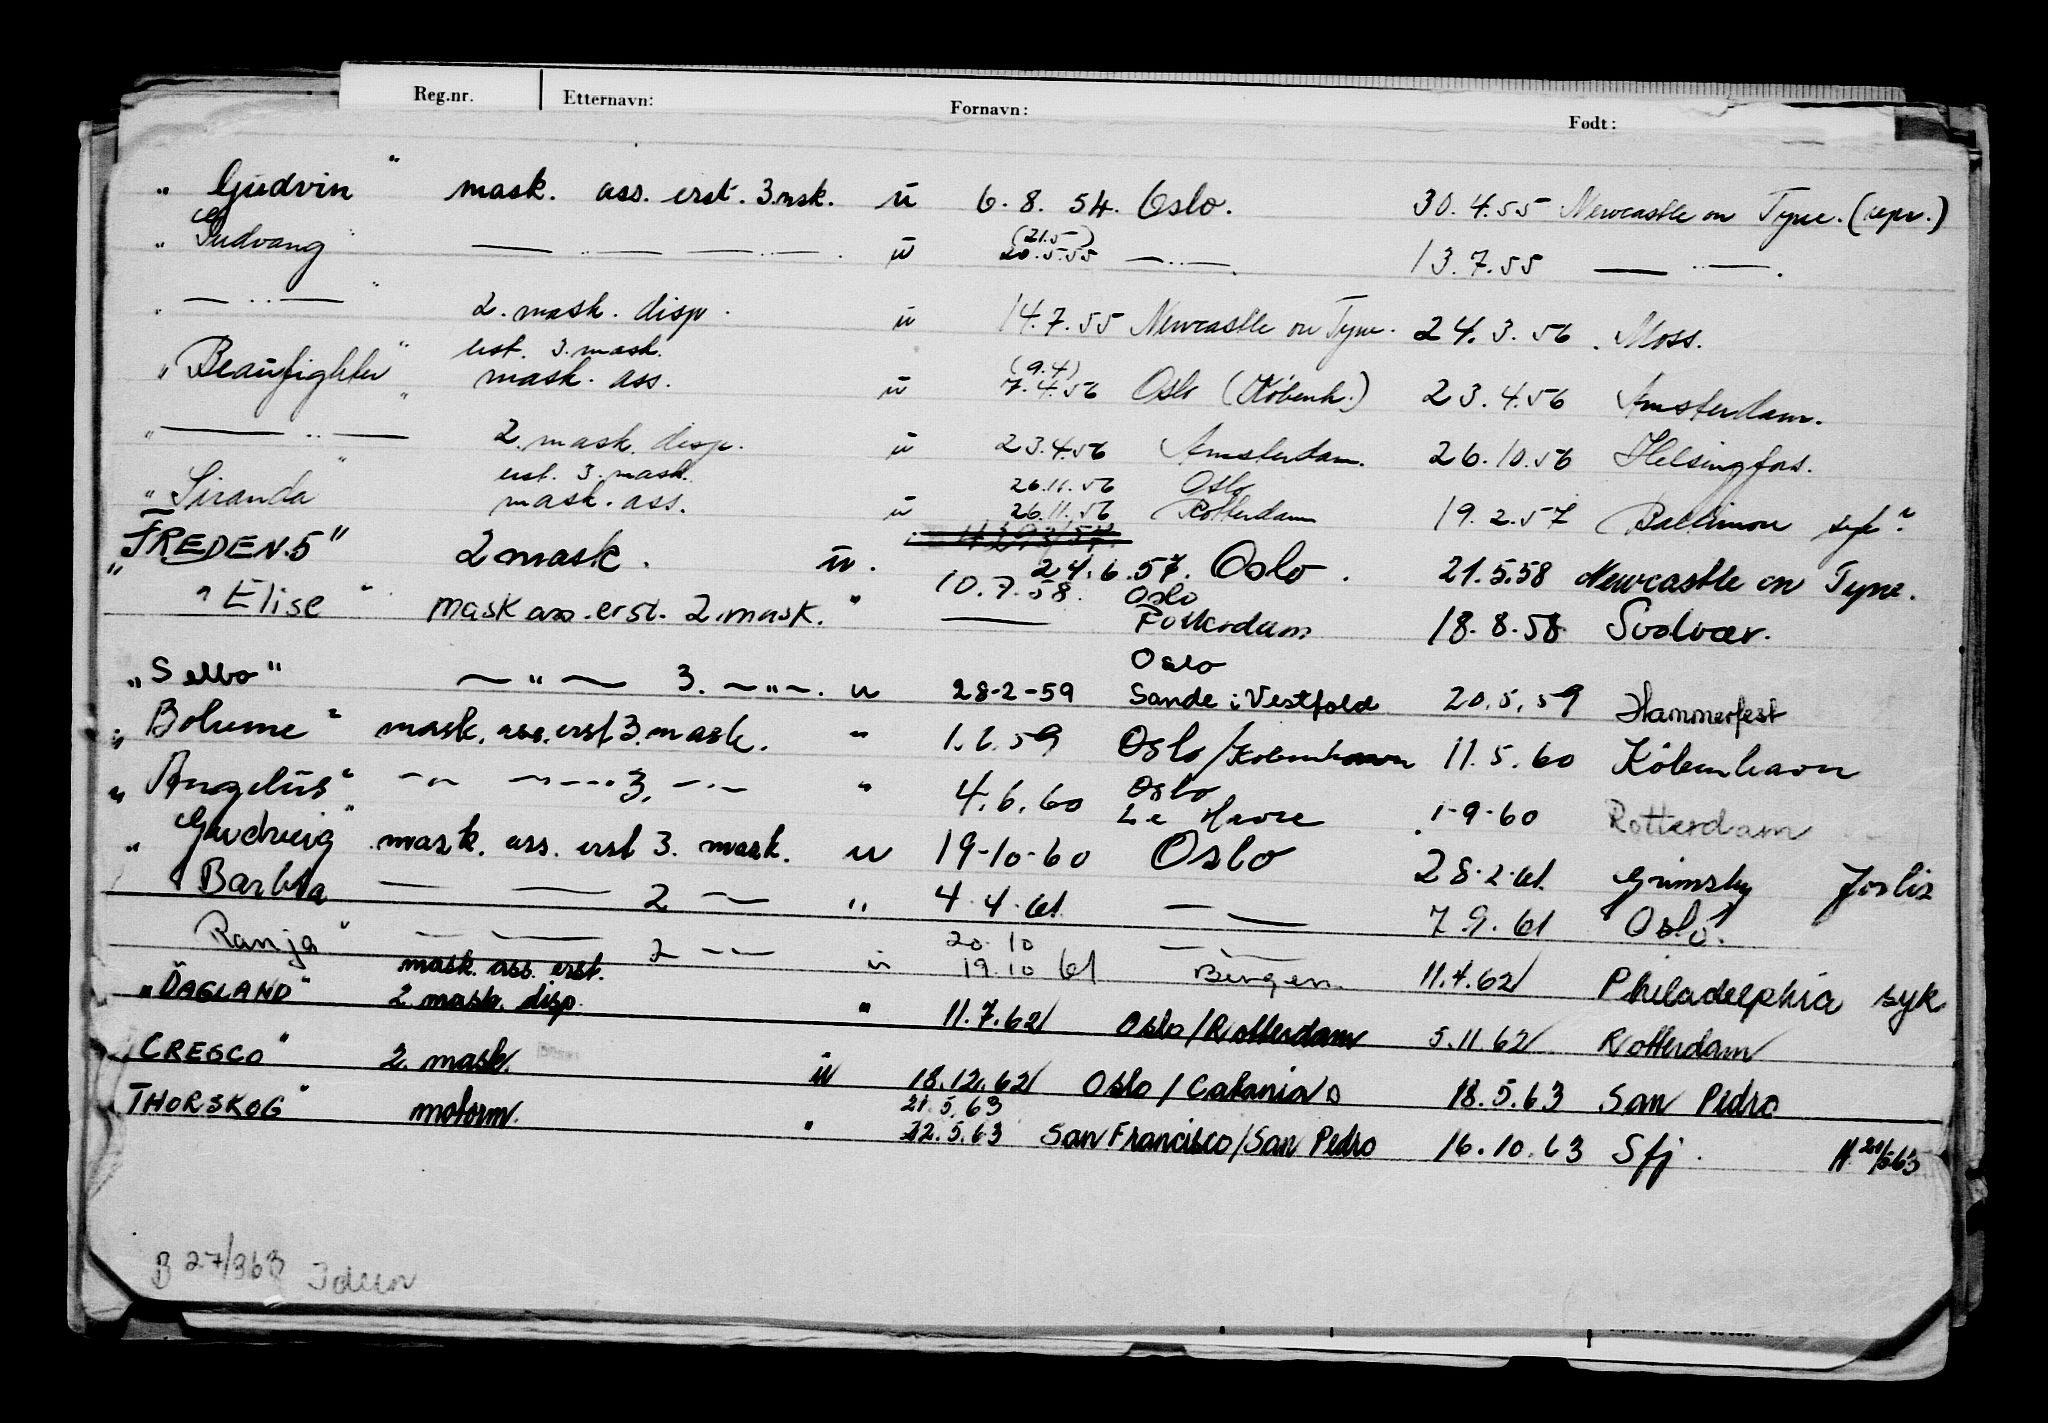 Reg.nr. Etternavn: Fornavn: Født:
" Gudvin " mask. ass. erst. 3.msk. u 6.8.54. Oslo. 30.4.55 Newcastle on Tyne. (repr.)
(21.5)
" Gudvang " — — — .. — . u 20.5.55 — .. — . 13.7.55 — .. — .
" — .. — " 2. mask. disp. u 14.7.55 Newcastle on Tyne. 24.3.56. Moss.
erst. 3. mask. (9.4)
" Beaufighter " mask. ass. u 7.4.56 Oslo (Københ.) 23.4.56 Amsterdam.
" — .. — " 2. mask. disp. u 23.4.56 Amsterdam. 26.10.56 Helsingfors.
erst. 3. mask. 26.11.56 Oslo
" Siranda " mask. ass. u 26.11.56 Rotterdam 19.2.57 Baltimore
" FREDEN.5" 2 mask. u. 24.6.57. Oslo. 21.5.58 Newcastle on Tyne.
10.7.58. Oslo
" Elise " mask ass. erst. 2. mask. " — 18.8.58 Svolvær.
Oslo
" Selbo" — " — 3. — " — . u 28-2-59 Sande i Vestfold 20.5.59 Hammerfest
" Boheme " mask. ass. erst 3. mask. " 1.6.59 Oslo/København 11.5.60 København
Oslo
" Angelus " — " — — .. 3. — .. — " 4.6.60 Le Havre 1-9-60 Rotterdam
" Gudveig " mask. ass. erst 3. mask. u 19-10-60 Oslo 28.2.61. Grimsby
Barbra — — 2 — " 4.4.61 — — 7.9.61 Oslo.
20.10
Ranja " — — 2 — - — u 19.10 61 — Bergen. 11.4.62 Philadelphia syk
mask. ass. erst.
"DAGLAND" 2 mask. disp. " 11.7.62 Oslo/Rotterdam 5.11.62 Rotterdam
"CRESCO" 2. mask. u 18.12.62 Oslo/Catania 18.5.63 San Pedro
21.5.63
THORSKOG" motorm. " 22.5.63 San Francisco/San Pedro 16.10.63 Sfj.
B 27/363